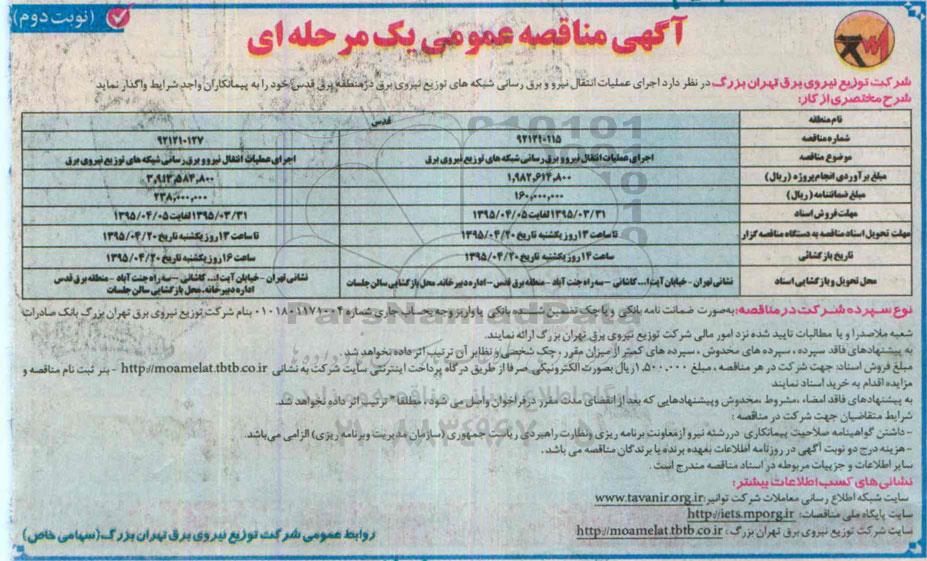 (نوبت دوم)
آگهی مناقصه عمومی یک مرحله ای
شرکت توزیع نیروی برق تهران بزرگ در نظر دارد اجرای عملیات انتقال نیرو و برق رسانی شبکه های توزیع نیروی برق در منطقه برق قدس خود را به پیمانکاران واجد شرایط واگذار نماید
شرح مختصری از کار:
نام منطقه قدس
شماره مناقصه ۹۲۱۲۱۰۱۱۵ ۹۲۱۲۱۰۱۲۷
موضوع مناقصه اجرای عملیات انتقال نیرو و برق رسانی شبکه های توزیع نیروی برق اجرای عملیات انتقال نیرو و برق رسانی شبکه های توزیع نیروی برق
مبلغ برآوردی انجام پروژه (ریال) ۱,۹۸۲,۶۱۴,۸۰۰ ۳,۹۱۳,۵۸۴,۸۰۰
مبلغ ضمانتنامه (ریال) ۱۶۰,۰۰۰,۰۰۰ ۲۳۸,۰۰۰,۰۰۰
مهلت فروش اسناد ۱۳۹۵/۰۳/۳۱ لغایت ۱۳۹۵/۰۴/۰۵ ۱۳۹۵/۰۳/۳۱ لغایت ۱۳۹۵/۰۴/۰۵
مهلت تحویل اسناد مناقصه به دستگاه مناقصه گزار تا ساعت ۱۳ روز یکشنبه تاریخ ۱۳۹۵/۰۴/۲۰ تا ساعت ۱۳ روز یکشنبه تاریخ ۱۳۹۵/۰۴/۲۰
تاریخ بازگشائی ساعت ۱۴ روز یکشنبه تاریخ ۱۳۹۵/۰۴/۲۰ ساعت ۱۶ روز یکشنبه تاریخ ۱۳۹۵/۰۴/۲۰
محل تحویل و بازگشایی اسناد نشانی تهران - خیابان آیت ا... کاشانی - سه راه جنت آباد - منطقه برق قدس - اداره دبیرخانه، محل بازگشایی سالن جلسات نشانی تهران - خیابان آیت ا... کاشانی - سه راه جنت آباد - منطقه برق قدس
اداره دبیرخانه، محل بازگشایی سالن جلسات
نوع سپرده شرکت در مناقصه: به صورت ضمانت نامه بانکی و یا چک تضمین شده بانکی یا واریز وجه بحساب جاری شماره ۰۱۰۱۸۰۱۱۷۱۰۰۴ بنام شرکت توزیع نیروی برق تهران بزرگ بانک صادرات
شعبه ملاصدرا و یا مطالبات تایید شده نزد امور مالی شرکت توزیع نیروی برق تهران بزرگ ارائه نمایند.
به پیشنهادهای فاقد سپرده ، سپرده های مخدوش ، سپرده های کمتر از میزان مقرر ، چک شخصی و نظایر آن ترتیب اثر داده نخواهد شد.
مبلغ فروش اسناد: جهت شرکت در هر مناقصه ، مبلغ ۱,۵۰۰,۰۰۰ ریال بصورت الکترونیکی صرفا از طریق درگاه پرداخت اینترنتی سایت شرکت به نشانی http://moamelat.tbtb.co.ir - بنر ثبت نام مناقصه و
مزایده اقدام به خرید اسناد نمایند
به پیشنهادهای فاقد امضاء ،مشروط مخدوش و پیشنهادهایی که بعد از انقضای مدت مقرر در فراخوان واصل می شود ، مطلقا" ترتیب اثر داده نخواهد شد.
شرایط متقاضیان جهت شرکت در مناقصه :
- داشتن گواهینامه صلاحیت پیمانکاری در رشته نیرو از معاونت برنامه ریزی و نظارت راهبردی ریاست جمهوری (سازمان مدیریت و برنامه ریزی) الزامی می باشد.
- هزینه درج دو نوبت آگهی در روزنامه اطلاعات بعهده برنده یا برندگان مناقصه می باشد.
سایر اطلاعات و جزییات مربوطه در اسناد مناقصه مندرج است .
نشانی های کسب اطلاعات بیشتر:
سایت شبکه اطلاع رسانی معاملات شرکت توانیر: www.tavanir.org.ir
سایت پایگاه ملی مناقصات: http://iets.mporg.ir
سایت شرکت توزیع نیروی برق تهران بزرگ : http://moamelat.tbtb.co.ir
روابط عمومی شرکت توزیع نیروی برق تهران بزرگ (سهامی خاص)
ParsNamadData